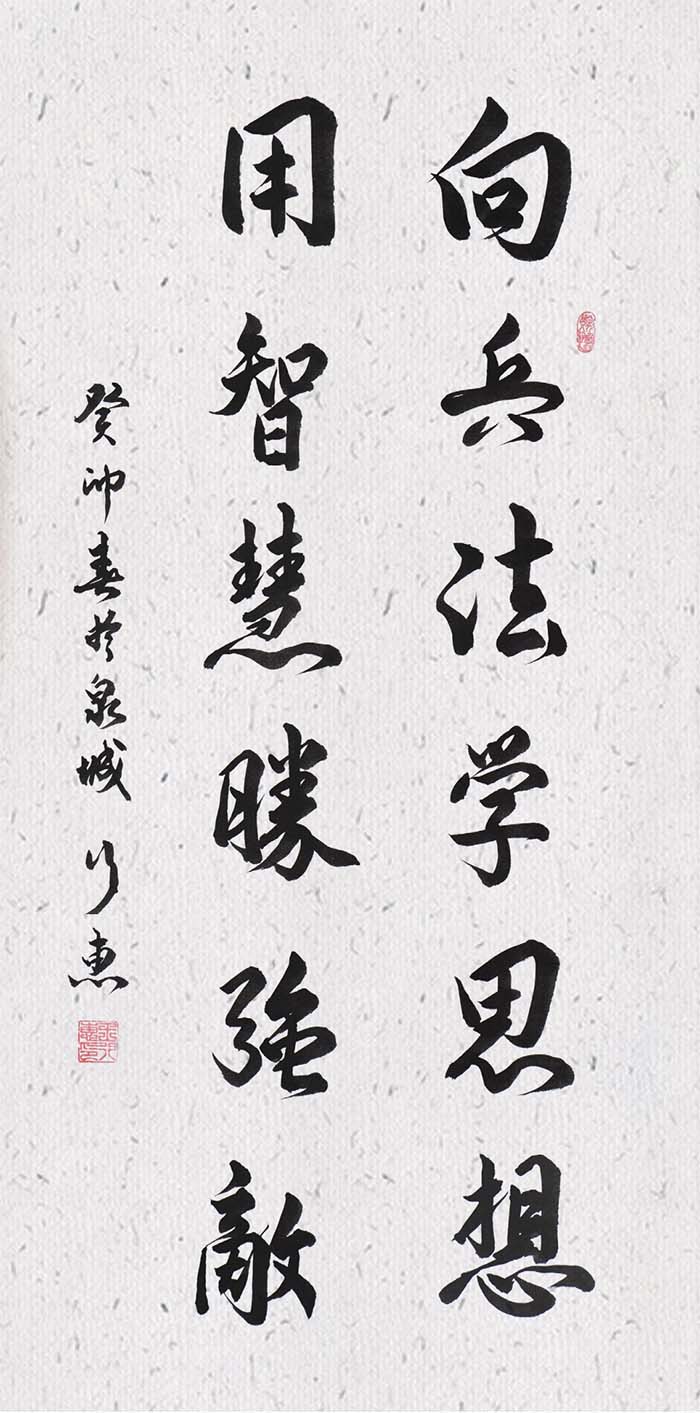 向兵法学思想
用智慧勝強敵
癸卯春於泉城 行惠